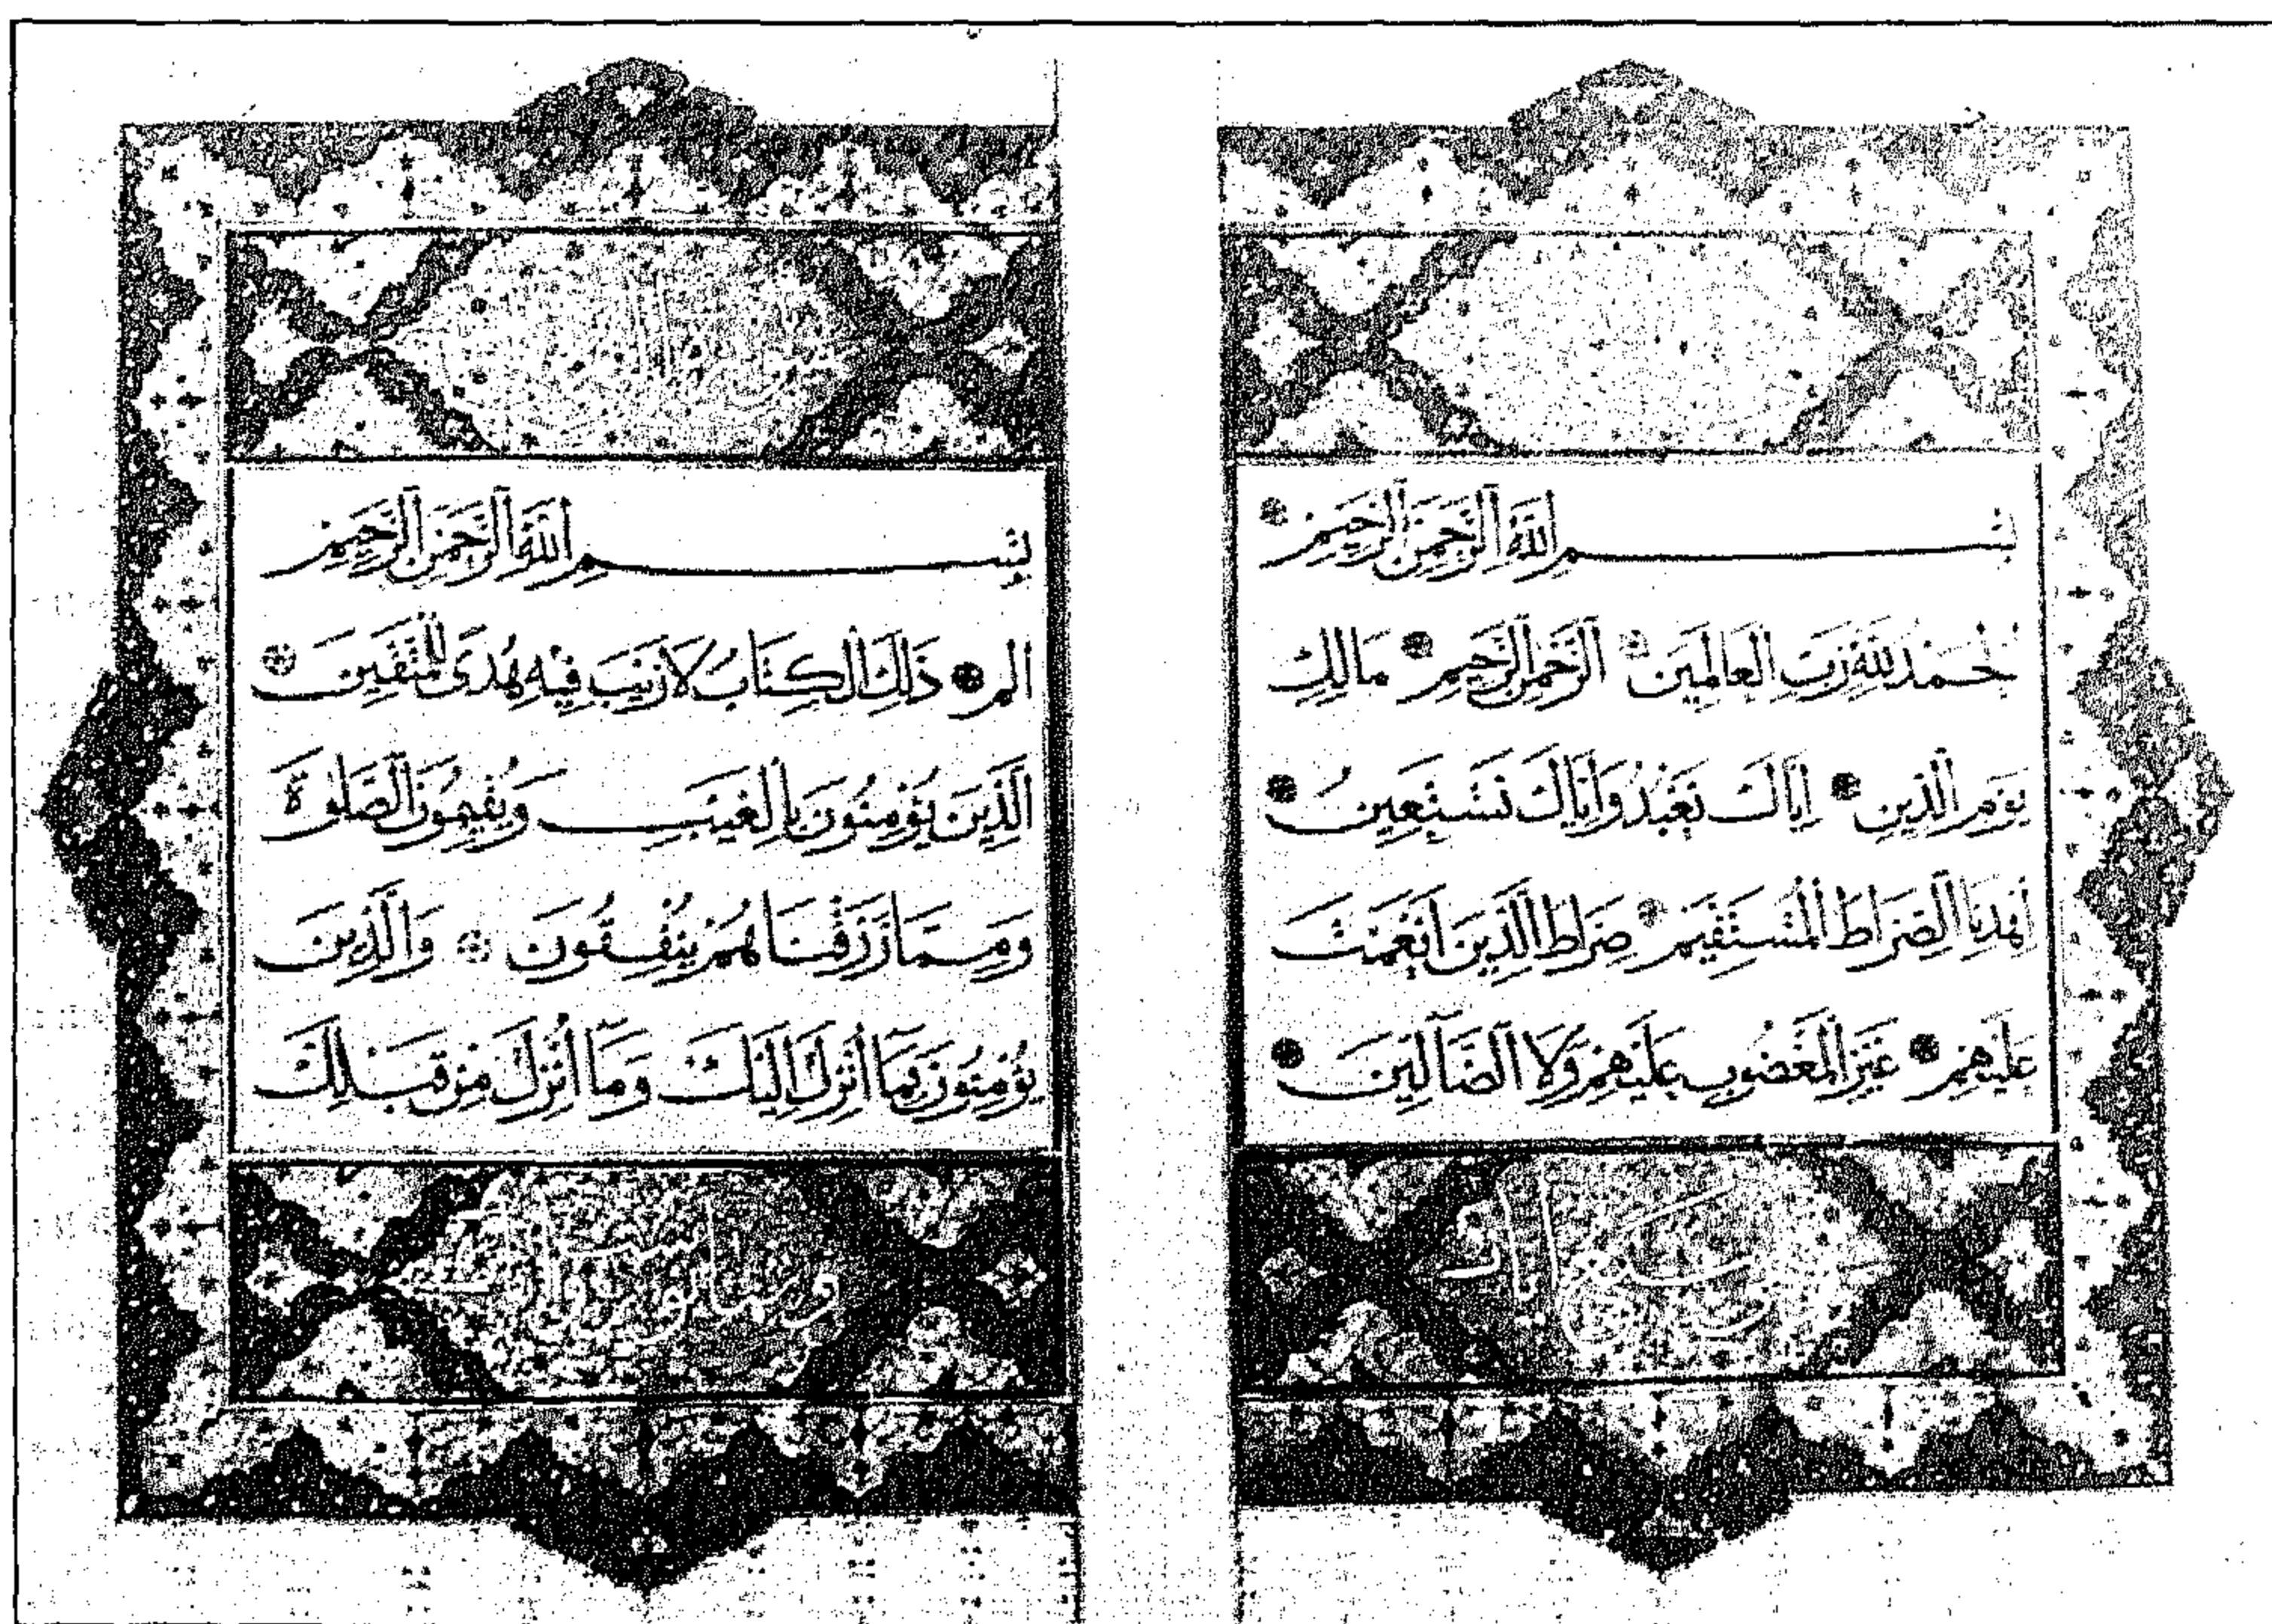 بِسْمِ اللَّهِ الرَّحْمَنِ الرَّحِيمِ
اَلْحَمْدُ لِلَّهِ رَبِّ الْعَالَمِينَ الرَّحْمَنِ الرَّحِيمِ مَالِكِ
يَوْمِ الدِّينِ اِيَّاكَ نَعْبُدُ وَاِيَّاكَ نَسْتَعِينُ
اِهْدِنَا الصِّرَاطَ الْمُسْتَقِيمَ صِرَاطَ الَّذِينَ اَنْعَمْتَ
عَلَيْهِمْ غَيْرِ الْمَغْضُوبِ عَلَيْهِمْ وَلَا الضَّالِّينَ
بِسْمِ اللَّهِ الرَّحْمَنِ الرَّحِيمِ
الم ذَلِكَ الْكِتَابُ لَا رَيْبَ فِيهِ هُدًى لِلْمُتَّقِينَ
الَّذِينَ يُؤْمِنُونَ بِالْغَيْبِ وَيُقِيمُونَ الصَّلٰوةَ
وَمِمَّا رَزَقْنَاهُمْ يُنْفِقُونَ وَالَّذِينَ
يُؤْمِنُونَ بِمَا أُنْزِلَ اِلَيْكَ وَمَا أُنْزِلَ مِنْ قَبْلِكَ